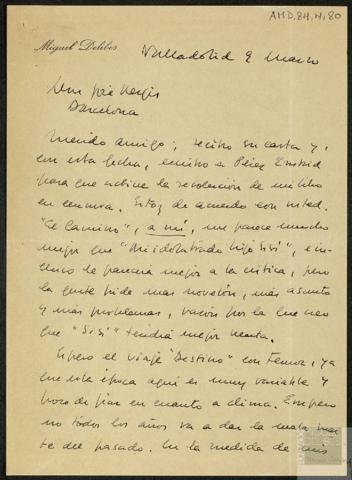 AMD,84,4,80
Miguel Delibes
Valladolid 9 Marzo
Don José Vergés
Barcelona
Querido amigo; recibo su carta y,
con esta fecha, escribo a Pérez Embid
para que active la resolución de mi libro
en censura. Estoy de acuerdo con usted.
"El Camino", a mí, me parece mucho
mejor que "Mi idolatrado hijo Sisí", e in-
cluso le parecerá mejor a la crítica, pero
la gente pide mas novelón, más asunto
y más problemas, razón por la que creo
que "Sisí" tendrá mejor venta.
Espero el viaje "Destino" con temor, ya
que esta época aquí es muy variable y
poco de fiar en cuanto a clima. Empero
no todos los años va a dar la mala suer
te del pasado. En la medida de mis